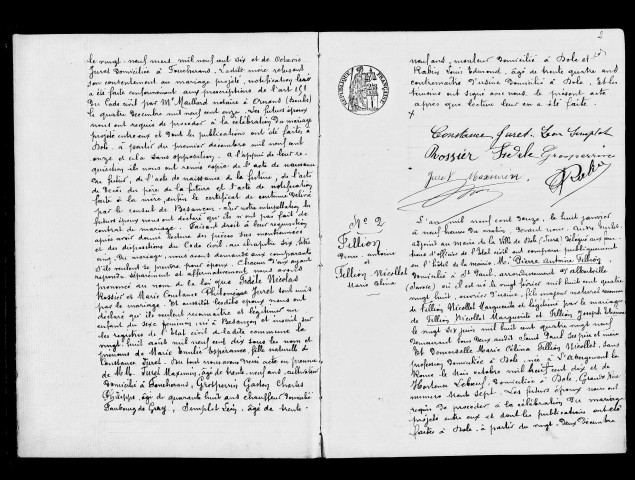 le vingt neuf mars mil neuf cent dix et de Octavie
Juret domiciliée à Foucherans. Ladite mère refusant
son consentement au mariage projeté, notification lui
a été faite conformément aux prescriptions de l'art 151
du Code civil par Me Maillard notaire à Ornans (Doubs)
le quatre décembre mil neuf cent onze. Les futurs époux
nous ont requis de procéder à la célébration du mariage
projeté entre eux et dont les publications ont été faites à
Dole, à partir du premier décembre mil neuf cent
onze et cela sans opposition. A l'appui de leur ré-
quisition ils nous ont remis copie de l'acte de naissance
du futur, de l'acte de naissance de la future, de l'acte
de décès du père de la future et l'acte de notification
faite à la mère, enfin le certificat de coutume délivré
par le consul de Besançon. Sur notre interpellation les
futurs époux nous ont déclaré qu'ils n'ont pas fait de
contrat de mariage. Faisant droit à leur réquisition
après avoir donné lecture des pièces sus mentionnées
et des dispositions du Code civil au chapitre six, titre
cinq, du mariage, nous avons demandé aux comparants
s'ils veulent se prendre pour époux. Chacun d'eux ayant
répondu séparément et affirmativement nous avons
prononcé au nom de la loi que Fidèle Nicolas
Rossier et Marie Constance Philomène Juret sont unis
par le mariage. Et aussitôt lesdits époux nous ont
déclaré qu'ils veulent reconnaître et légitimer un
enfant du sexe né à Besançon et inscrit sur
les registres de l'état civil de ladite commune le
vingt huit août mil neuf cent dix sous les nom et
prénoms de Marie Emilie Espérance, fille naturelle de
Constance Juret. Du tout nous avons dressé acte en présence
de M.M. Juret Maximin, âgé de trente neuf ans, cultivateur
domicilié à Foucherans, Grosperrin Gaston Charles
Philippe, âgé de quarante huit ans chauffeur domicilié
Faubourg de Gray, Semplot Léon, âgé de trente
2
neuf ans, monteur domicilié à Dole et
Rabin Louis Edmond, âgé de trente quatre ans
contremaître d'usine domicilié à Dole. Et les
témoins ont signé avec nous le présent acte
après que lecture leur en a été faite.
Constance Juret Léon Semplot
Rossier Fidèle Grosperrin
Juret Maximin
RÉPUBLIQUE FRANÇAISE
No 2
Fillion
Pierre Antoine
et
Fillion Nicollet
Marie Célina
L'an mil neuf cent douze, le huit janvier
à neuf heures du matin, devant nous
adjoint au maire de la Ville de Dole (Jura) délégué aux fonc-
tions d'officier de l'état civil ont comparu publiquement
en l'hôtel de la mairie M. Pierre Antoine Fillion
domicilié à St Paul, arrondissement d'Albertville
(Savoie) où il est né le vingt février mil huit cent quatre
vingt huit, ouvrier d'usine, fils majeur
de Fillion Nicollet Marguerite et légitimé par le mariage
de Fillion Nicollet Marguerite et Fillion Joseph Etienne
le vingt six juin mil huit cent quatre vingt neuf
demeurant tous deux audit Saint Paul
Et Demoiselle Marie Célina Fillion Nicollet, sans
profession domiciliée à Dole, née à
Rome le trois octobre mil huit cent dix et de
Hortense Leboeuf, domiciliée à Dole, Grande Rue
numéro trente sept. Les futurs époux nous ont
requis de procéder à la célébration du mariage
projeté entre eux et dont les publications ont été
faites à Dole à partir du vingt deux décembre